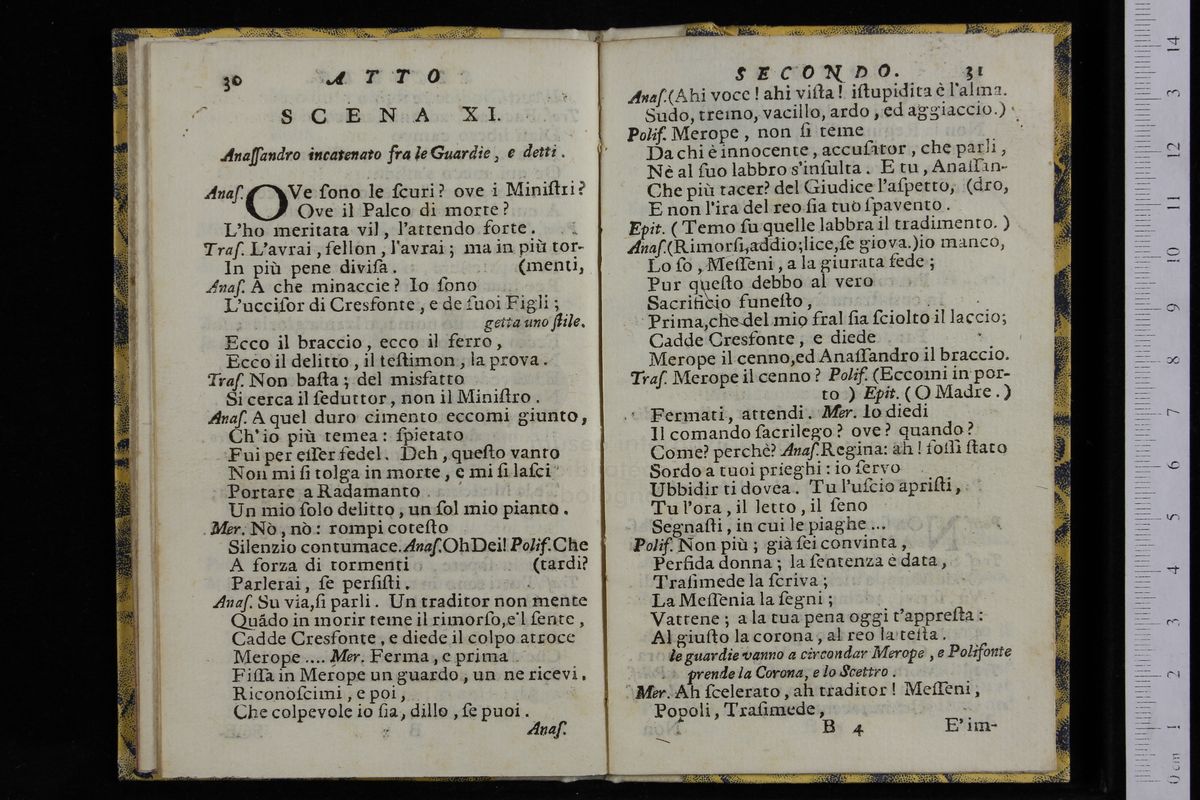 30 ATTO
SCENA XI.
Anaſſandro incatenato fra le Guardie, e detti.
Anaſ. OVe ſono le ſcuri? ove i Miniſtri?
Ove il Palco di morte?
L'ho meritata vil, l'attendo forte.
Traſ. L'avrai, fellon, l'avrai; ma in più tor-
In più pene diviſa. (menti,
Anaſ. A che minaccie? Io ſono
L'ucciſor di Cresfonte, e de ſuoi Figli;
getta uno ſtile.
Ecco il braccio, ecco il ferro,
Ecco il delitto, il teſtimon, la prova.
Traſ. Non baſta; del misfatto
Si cerca il ſeduttor, non il Miniſtro.
Anaſ. A quel duro cimento eccomi giunto,
Ch'io più temea: ſpietato
Fui per eſſer fedel. Deh, queſto vanto
Non mi ſi tolga in morte, e mi ſi laſci
Portare a Radamanto
Un mio ſolo delitto, un ſol mio pianto.
Mer. Nò, nò: rompi coteſto
Silenzio contumace. Anaſ. Oh Dei! Polif. Che
A forza di tormenti (tardi?
Parlerai, ſe perſiſti.
Anaſ. Su via, ſi parli. Un traditor non mente
Quãdo in morir teme il rimorſo, e'l ſente,
Cadde Cresfonte, e diede il colpo atroce
Merope .... Mer. Ferma, e prima
Fiſſa in Merope un guardo, un ne ricevi.
Riconoſcimi, e poi,
Che colpevole io ſia, dillo, ſe puoi.
Anaſ.
SECONDO. 31
Anaſ. (Ahi voce! ahi viſta! iſtupidita è l'alma.
Sudo, tremo, vacillo, ardo, ed aggiaccio.)
Polif. Merope, non ſi teme
Da chi è innocente, accuſator, che parli,
Nè al ſuo labbro s'inſulta. E tu, Anaſſan-
Che più tacer? del Giudice l'aſpetto, (dro,
E non l'ira del reo ſia tuo ſpavento.
Epit. (Temo ſu quelle labbra il tradimento.)
Anaſ. (Rimorſi, addio; lice, ſe giova.) io manco,
Lo ſo, Meſſeni, a la giurata fede;
Pur queſto debbo al vero
Sacrificio funeſto,
Prima, che del mio fral ſia ſciolto il laccio;
Cadde Cresfonte, e diede
Merope il cenno, ed Anaſſandro il braccio.
Traſ. Merope il cenno? Polif. (Eccomi in por-
to) Epit. (O Madre.)
Fermati, attendi. Mer. Io diedi
Il comando ſacrilego? ove? quando?
Come? perchè? Anaſ. Regina: ah! foſſi ſtato
Sordo a tuoi prieghi: io ſervo
Ubbidir ti dovea. Tu l'uſcio apriſti,
Tu l'ora, il letto, il ſeno
Segnaſti, in cui le piaghe ...
Polif. Non più; già ſei convinta,
Perfida donna; la ſentenza è data,
Traſimede la ſcriva;
La Meſſenia la ſegni;
Vattene; a la tua pena oggi t'appreſta:
Al giuſto la corona, al reo la teſta.
le guardie vanno a circondar Merope, e Polifonte
prende la Corona, e lo Scettro.
Mer. Ah ſcelerato, ah traditor! Meſſeni,
Popoli, Traſimede,
B 4 E' im-